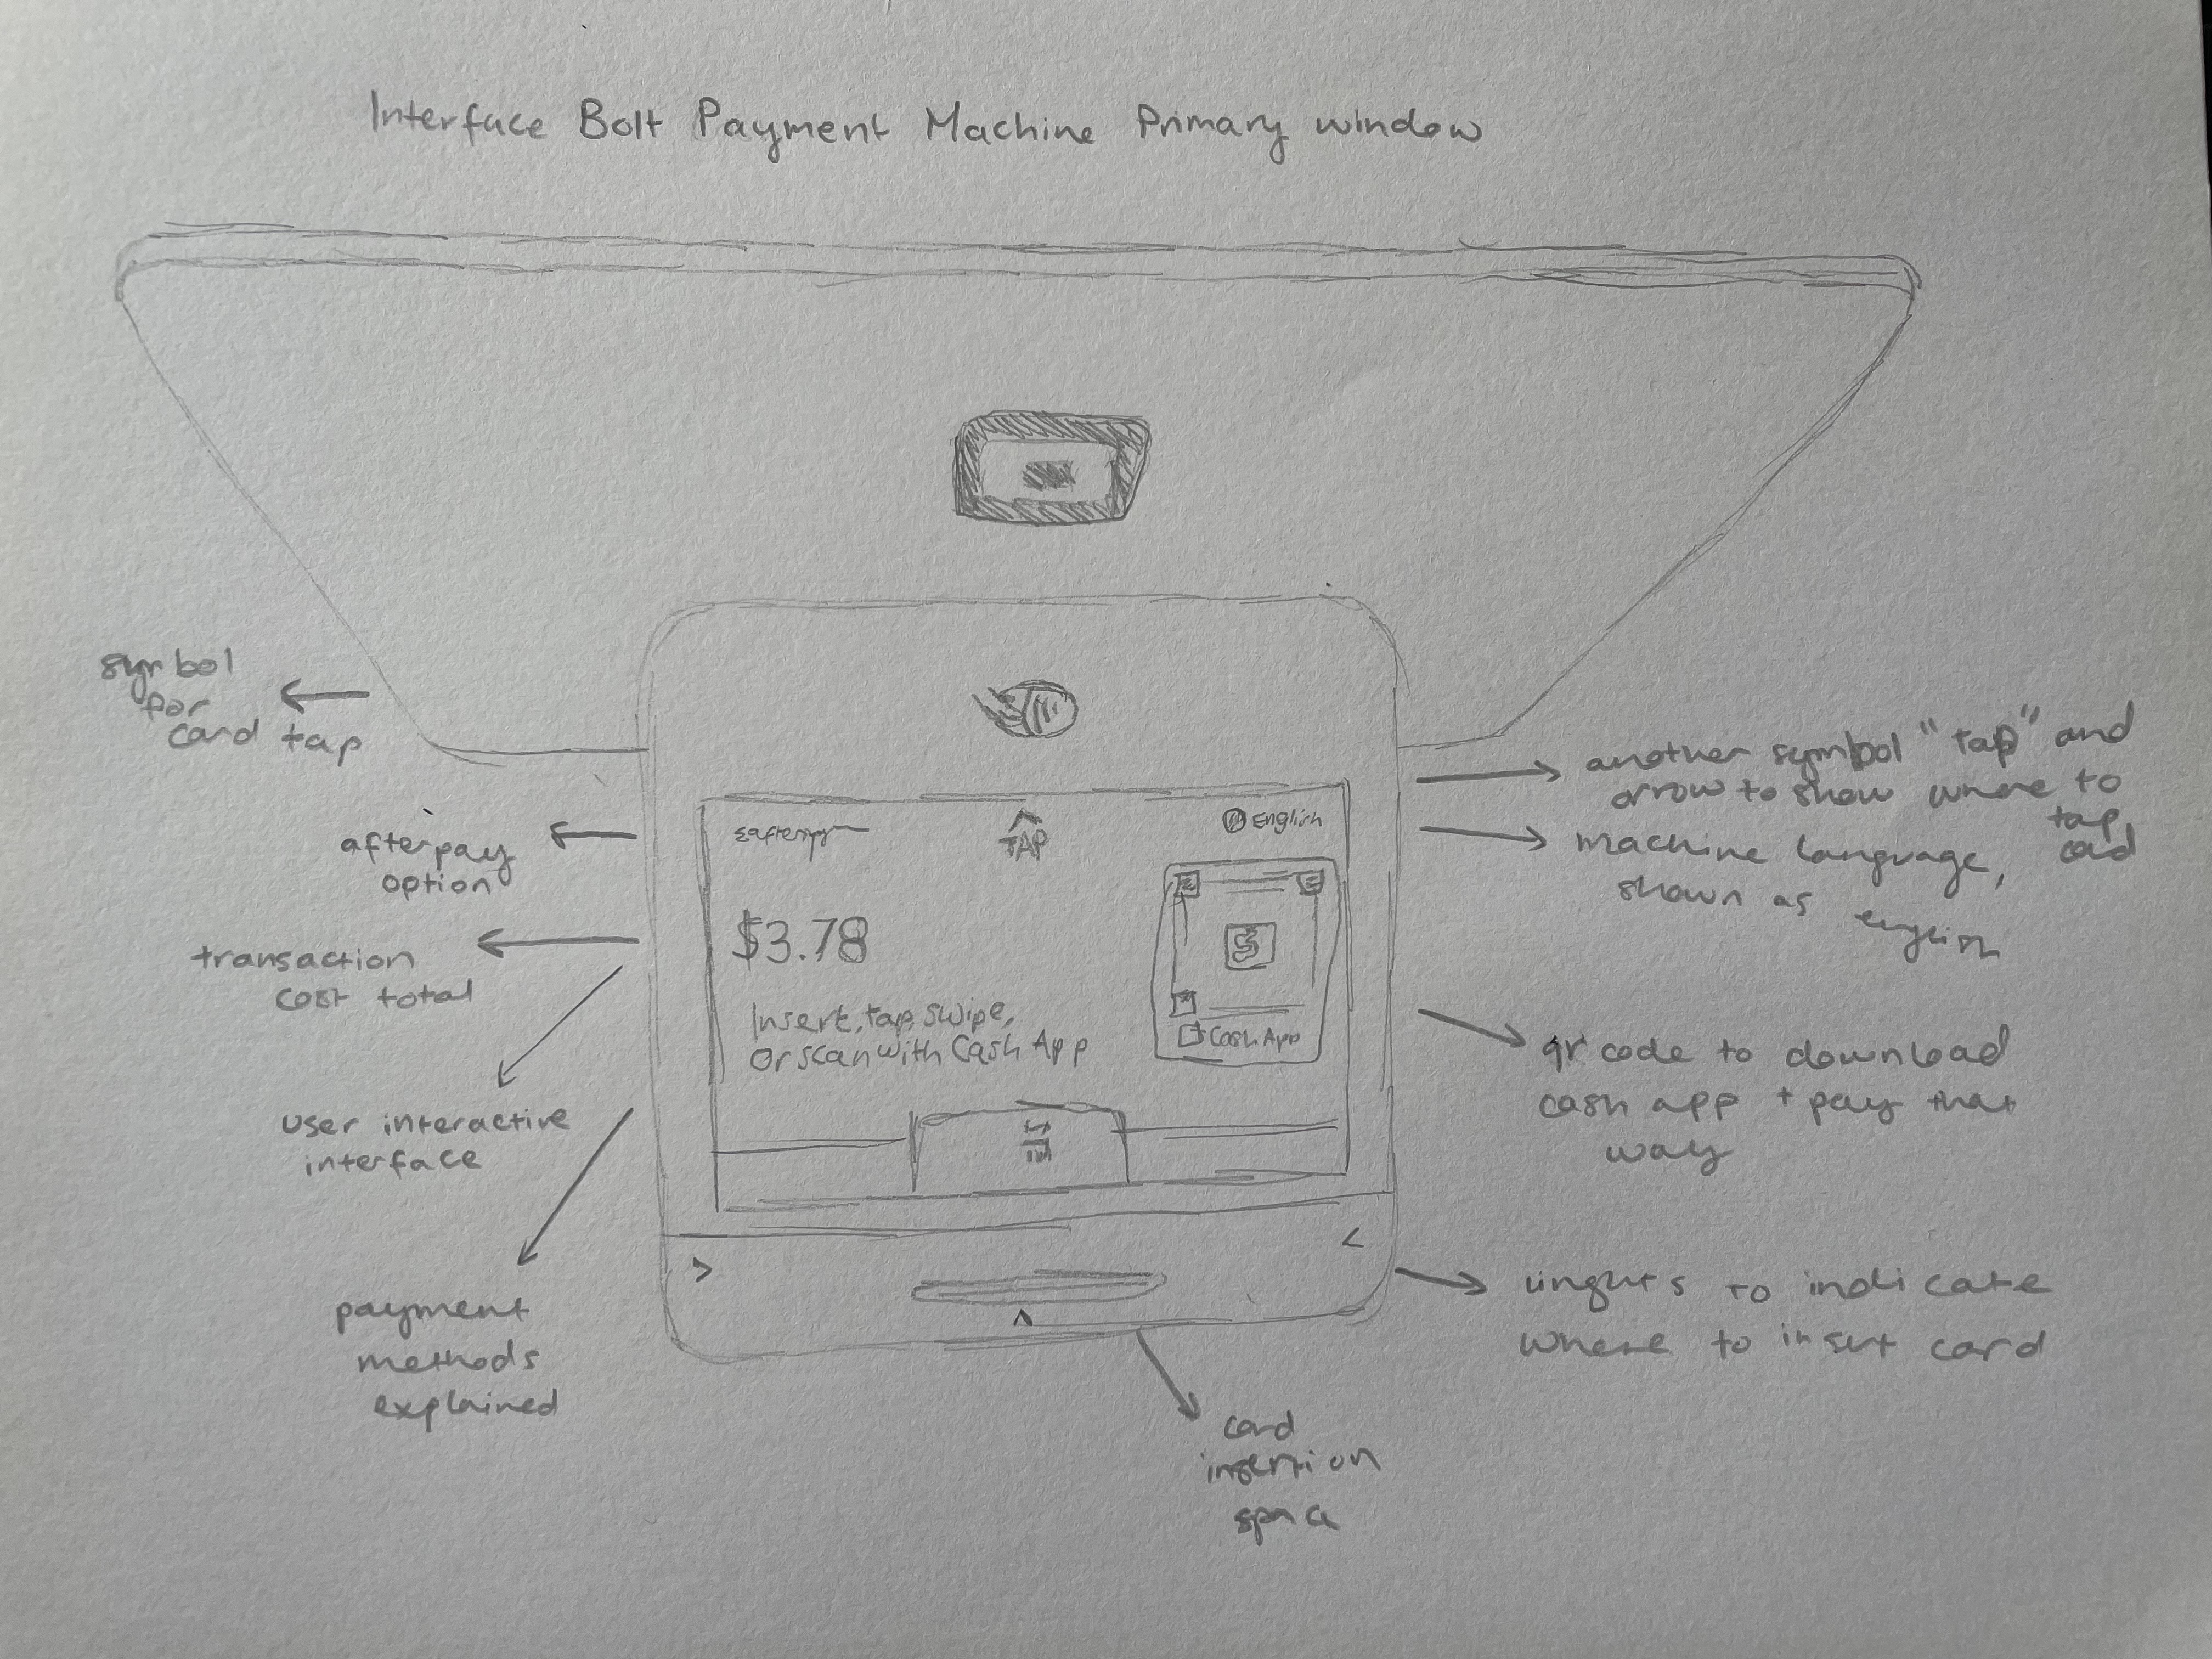 Interface Bolt Payment Machine Primary window
symbol
for
card tap
afterpay
option
transaction
cost total
user interactive
interface
payment
methods
explained
TAP
English
$3.78
Insert, tap, swipe,
Or scan with Cash App
Cash App
another symbol "tap" and
arrow to show where to
tap
card
machine language,
shown as
english
qr code to download
cash app + pay that
way
to indicate
where to insert card
card
insertion
space